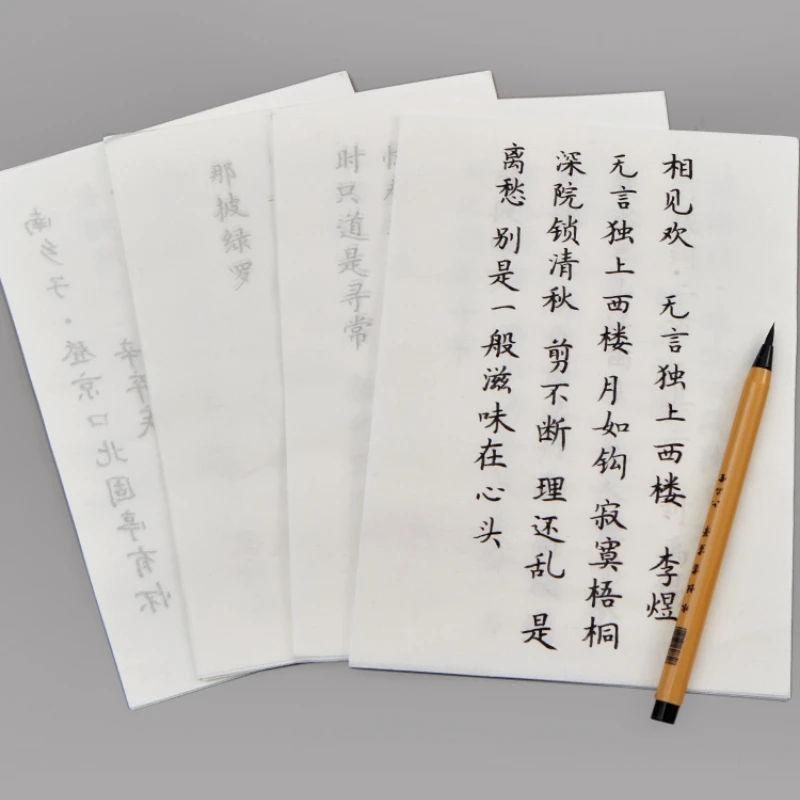 相见欢·无言独上西楼 李煜
无言独上西楼 月如钩 寂寞梧桐
深院锁清秋 剪不断 理还乱 是
离愁 别是一般滋味在心头
时只道是寻常
那披绿罗
辛弃疾
南乡子·登京口北固亭有怀